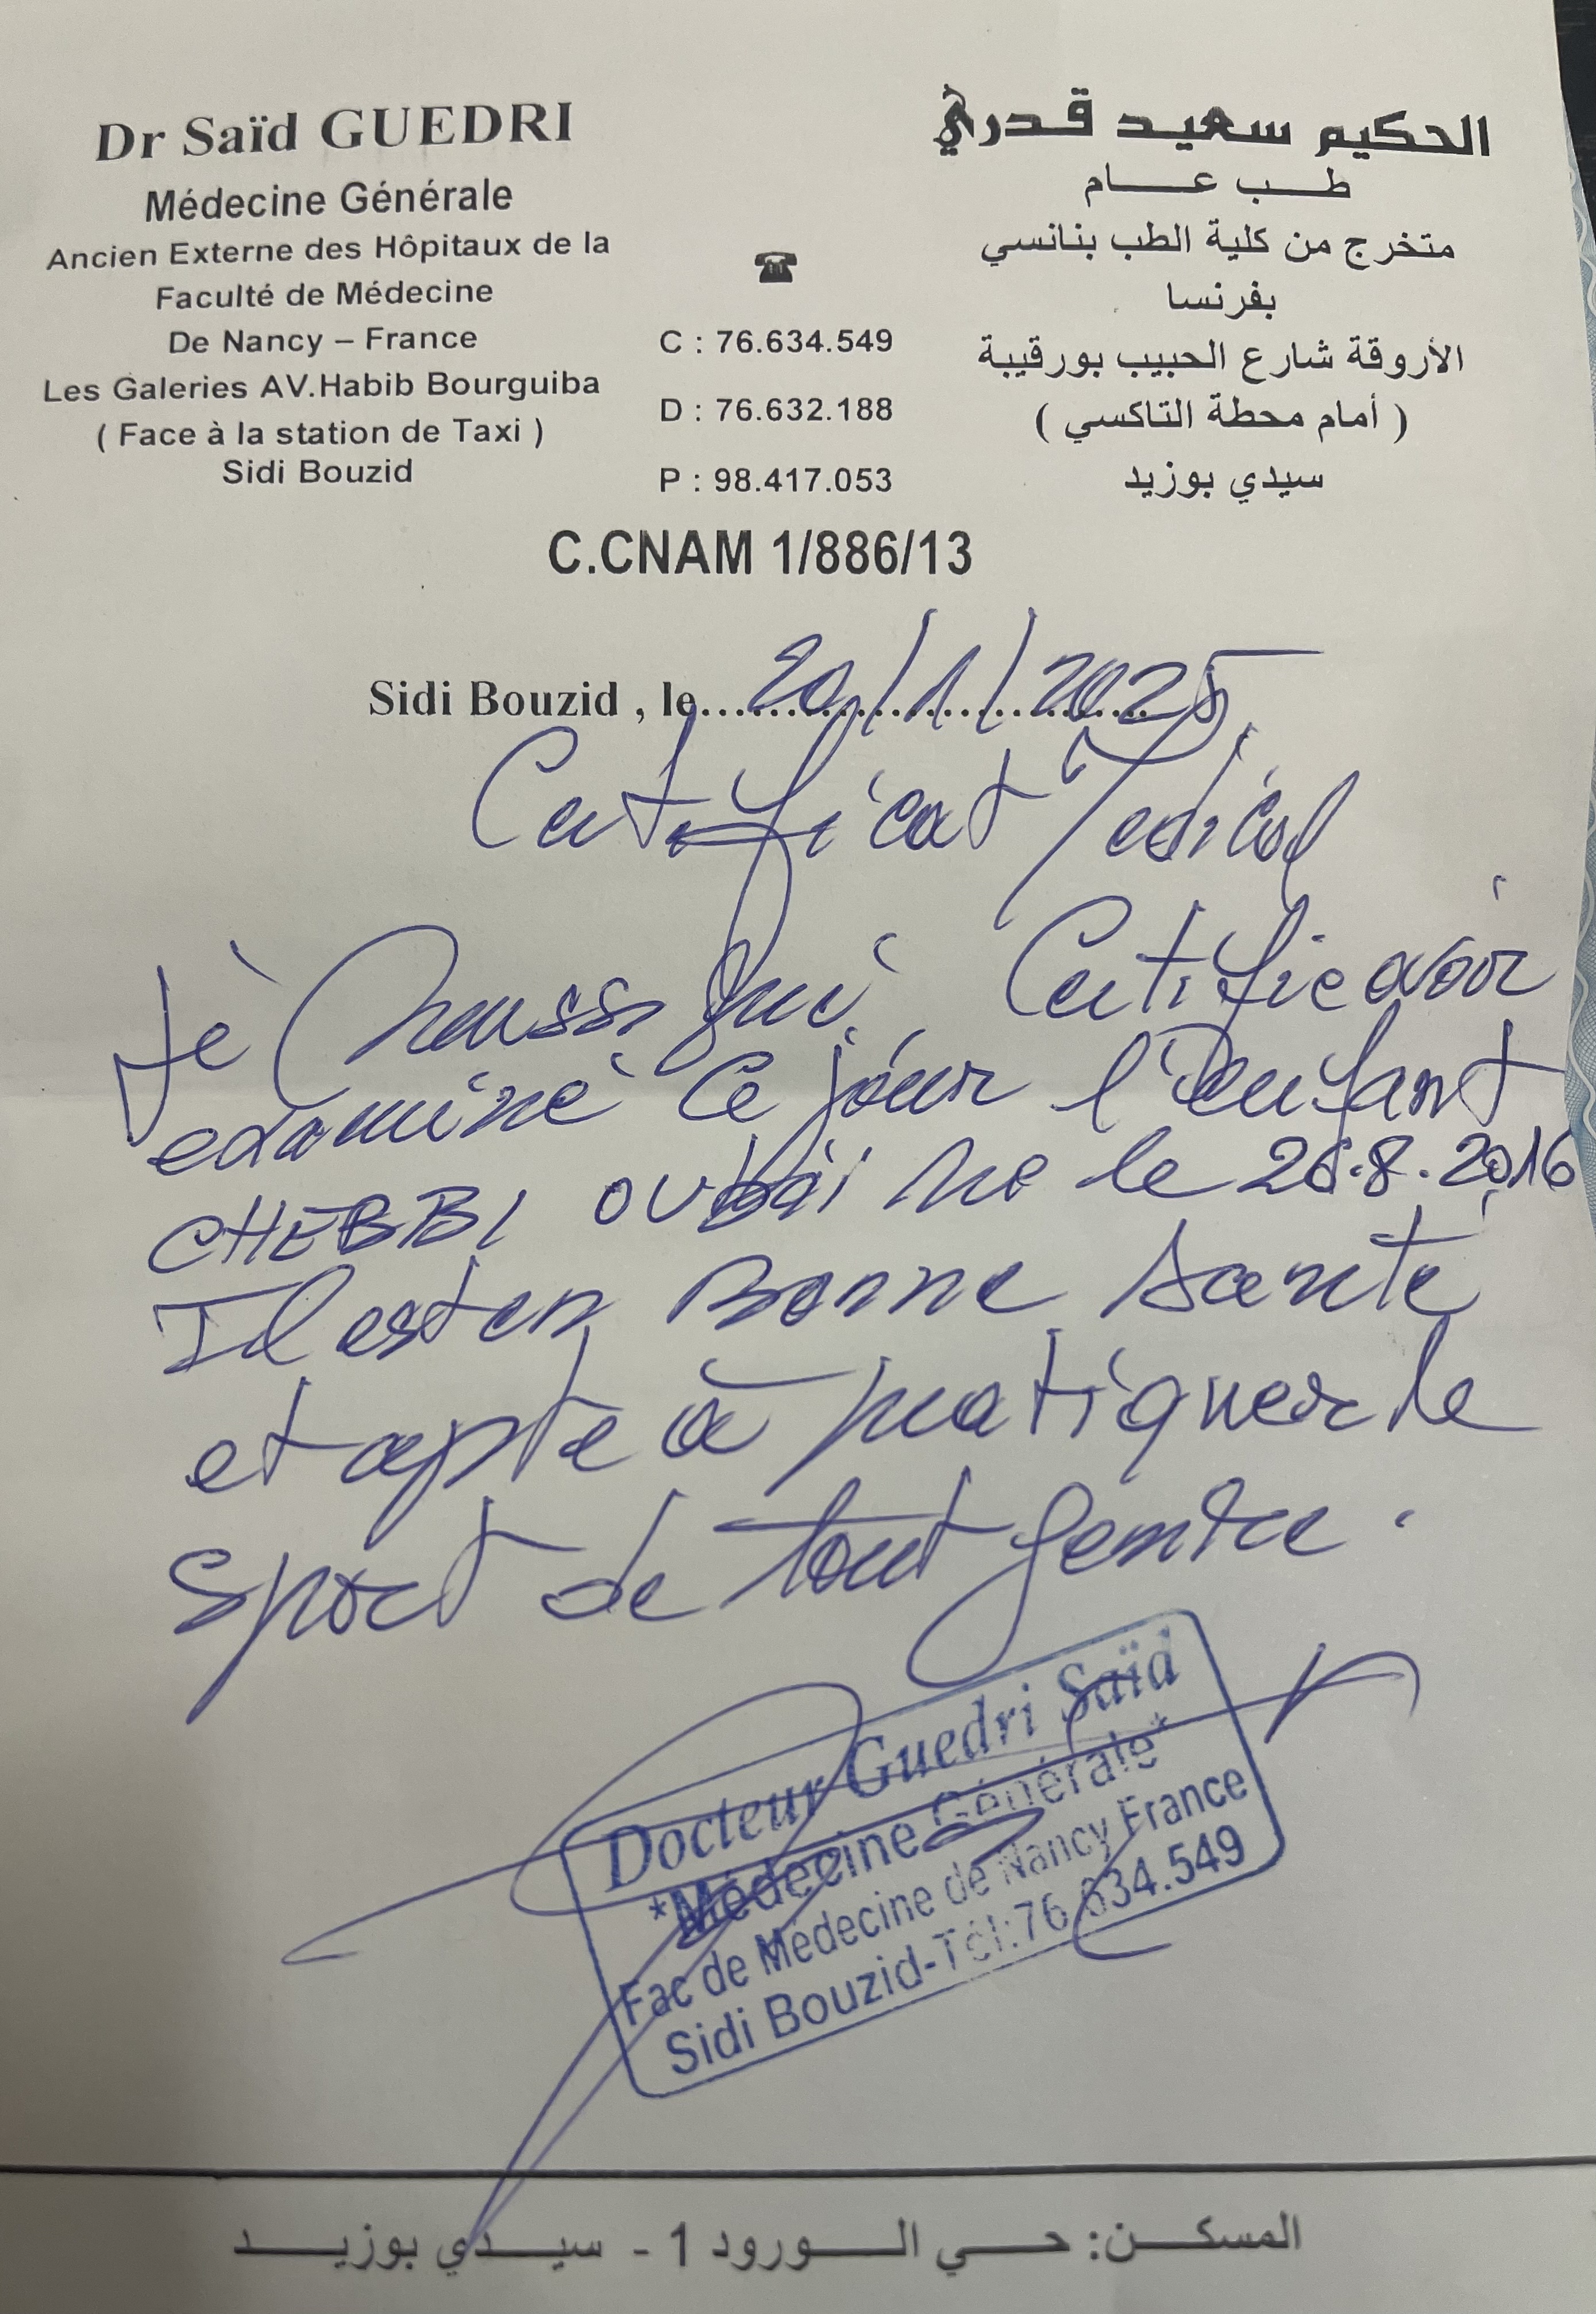 Dr Saïd GUEDRI
Médecine Générale
Ancien Externe des Hôpitaux de la
Faculté de Médecine
De Nancy – France
Les Galeries AV.Habib Bourguiba
( Face à la station de Taxi )
Sidi Bouzid
☎
C : 76.634.549
D : 76.632.188
P : 98.417.053
الحكيم سعيد قدري
طب عام
متخرج من كلية الطب بنانسي
بفرنسا
الأروقة شارع الحبيب بورقيبة
( أمام محطة التاكسي )
سيدي بوزيد
C.CNAM 1/886/13
Sidi Bouzid , le 20/1/2025
Certificat Medical
Je soussigné Certifie avoir
examiné ce jour l'enfant
CHEBBI né le 2016
Il est en Bonne santé
et apte à pratiquer le
sport de tout genre.
Docteur Guedri Saïd
*Médecine Générale*
Fac de Médecine de Nancy France
Sidi Bouzid-Tél:76.634.549
المسكن: حي الورود 1 - سيدي بوزيد